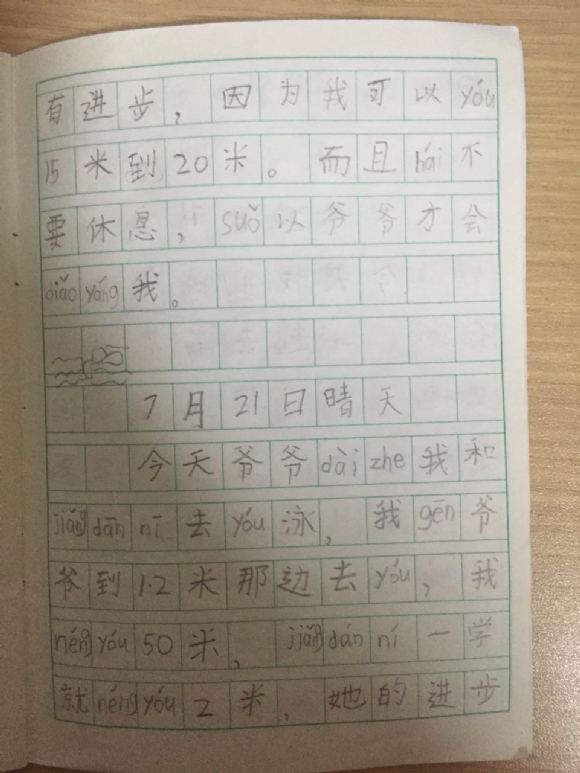 有进步，因为我可以yóu
15米到20米。而且hái不
要休息，suǒ以爷爷才会
biǎo yáng我。
7月21日晴天
今天爷爷dài zhe我和
jiǎng dān nī去yóu泳，我gēn爷
爷到1.2米那边去yóu，我
néng yóu 50米，jiǎng dán ní一学
就néng yóu 2米，她的进步